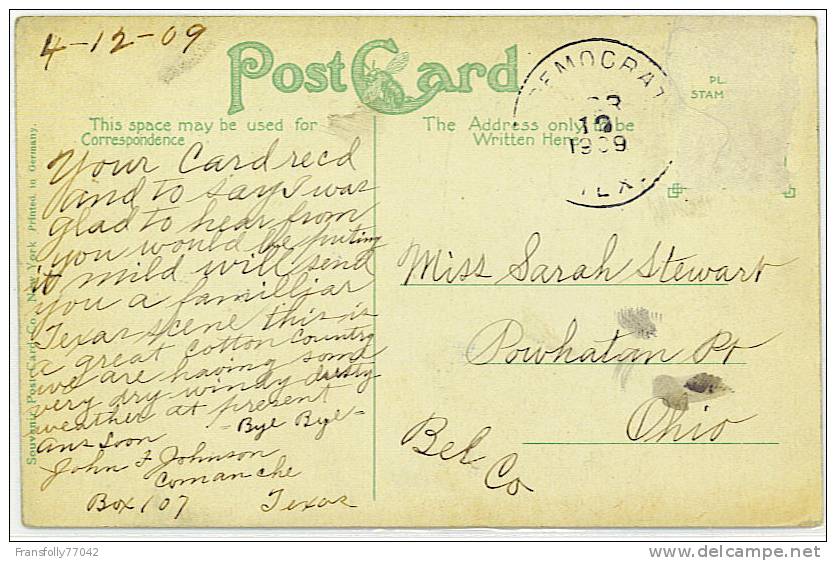 4-12-09
Post Card
This space may be used for
Correspondence
The Address only to be
Written Here
DEMOCRAT
1909
TEX.
PL
STAM
Your Card recd
and to say I was
glad to hear from
you would be puting
it mild will send
you a familliar
Texas scene this is
a great cotton country
we are having some
very dry windy dusty
weather at present
ans soon - Bye Bye -
John F Johnson
Comanche
Box 107 Texas
Miss Sarah Stewart
Powhatan Pt
Ohio
Bel
Co
Souvenir Post Card Co. New York Printed in Germany.
Fransfolly77042
www.delcampe.net